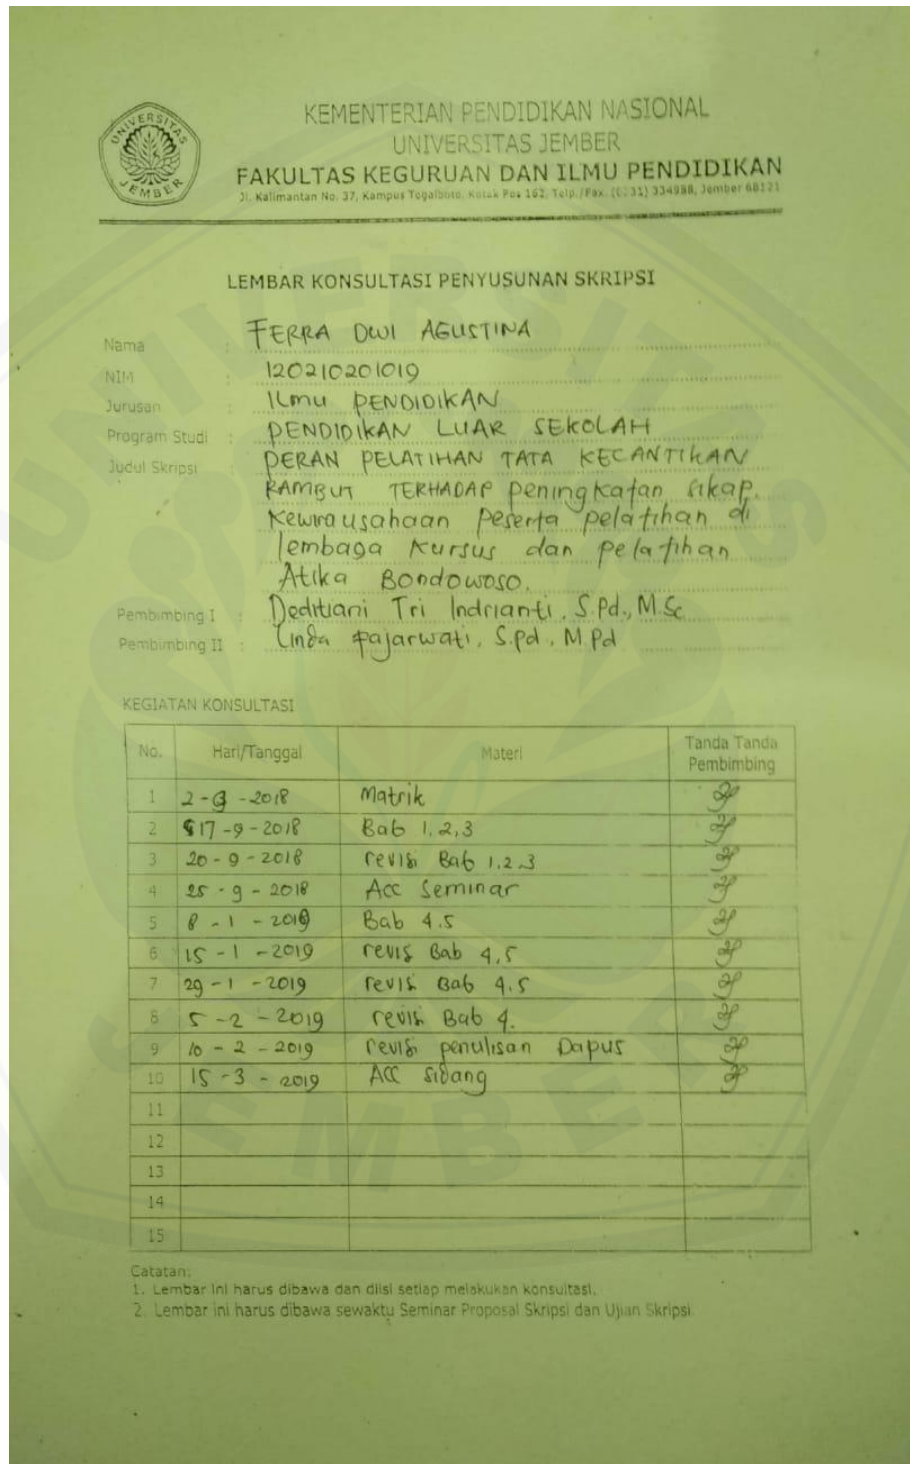 UNIVERSITAS JEMBER
KEMENTERIAN PENDIDIKAN NASIONAL
UNIVERSITAS JEMBER
FAKULTAS KEGURUAN DAN ILMU PENDIDIKAN
Jl. Kalimantan No. 37, Kampus Tegalboto, Kotak Pos 162, Telp./Fax. (0331) 334988, Jember 68121
LEMBAR KONSULTASI PENYUSUNAN SKRIPSI
Nama : FERRA DWI AGUSTINA
NIM : 120210201019
Jurusan : ILmu PENDIDIKAN
Program Studi : PENDIDIKAN LUAR SEKOLAH
Judul Skripsi : PERAN PELATIHAN TATA KECANTIKAN
RAMBUT TERHADAP peningkatan sikap
Kewirausahaan peserta pelatihan di
lembaga Kursus dan pelatihan
Atika Bondowoso.
Pembimbing I : Deditiani Tri Indrianti, S.Pd., M.Sc
Pembimbing II : Linda Fajarwati, S.Pd, M Pd
KEGIATAN KONSULTASI
No. Hari/Tanggal Materi Tanda Tanda Pembimbing
1 2-9-2018 Matrik
2 17-9-2018 Bab 1,2,3
3 20-9-2018 revisi Bab 1.2.3
4 25-9-2018 Acc Seminar
5 8-1-2019 Bab 4.5
6 15-1-2019 revisi Bab 4,5
7 29-1-2019 revisi Bab 4.5
8 5-2-2019 revisi Bab 4.
9 10-2-2019 revisi penulisan Dapus
10 15-3-2019 ACC Sidang
11
12
13
14
15
Catatan:
1. Lembar ini harus dibawa dan diisi setiap melakukan konsultasi.
2. Lembar ini harus dibawa sewaktu Seminar Proposal Skripsi dan Ujian Skripsi.